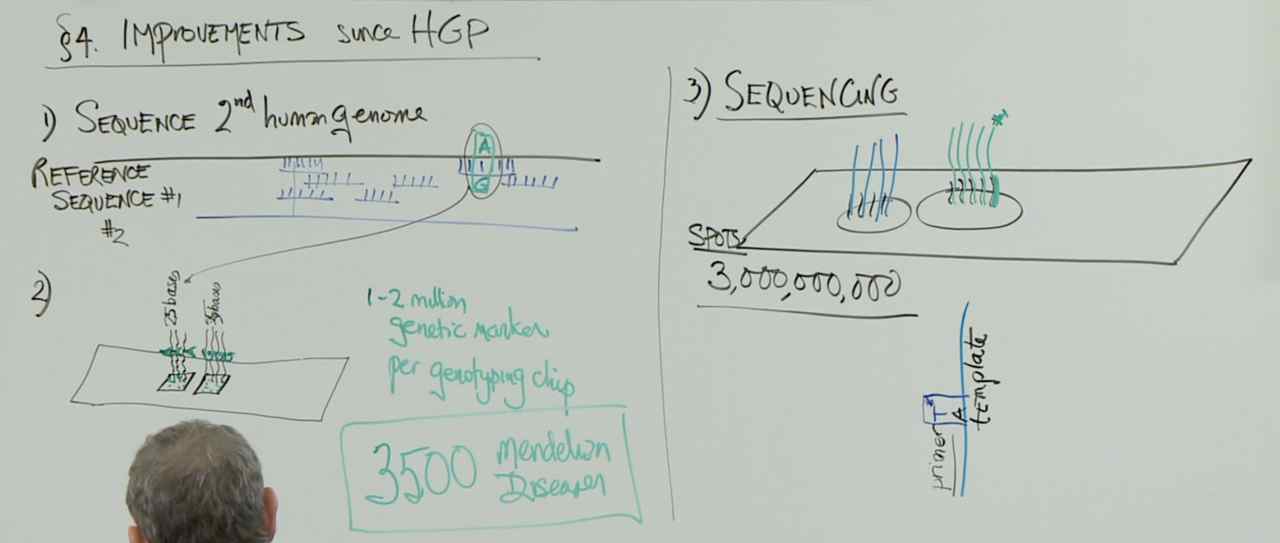 §4. IMPROVEMENTS since HGP
1) SEQUENCE 2nd human genome
REFERENCE
SEQUENCE #1
#2
A
G
2)
25 bases
1-2 million
genetic marker
per genotyping chip
3500 Mendelian
Diseases
3) SEQUENCING
SPOTS
3,000,000,000
template
T A
primer